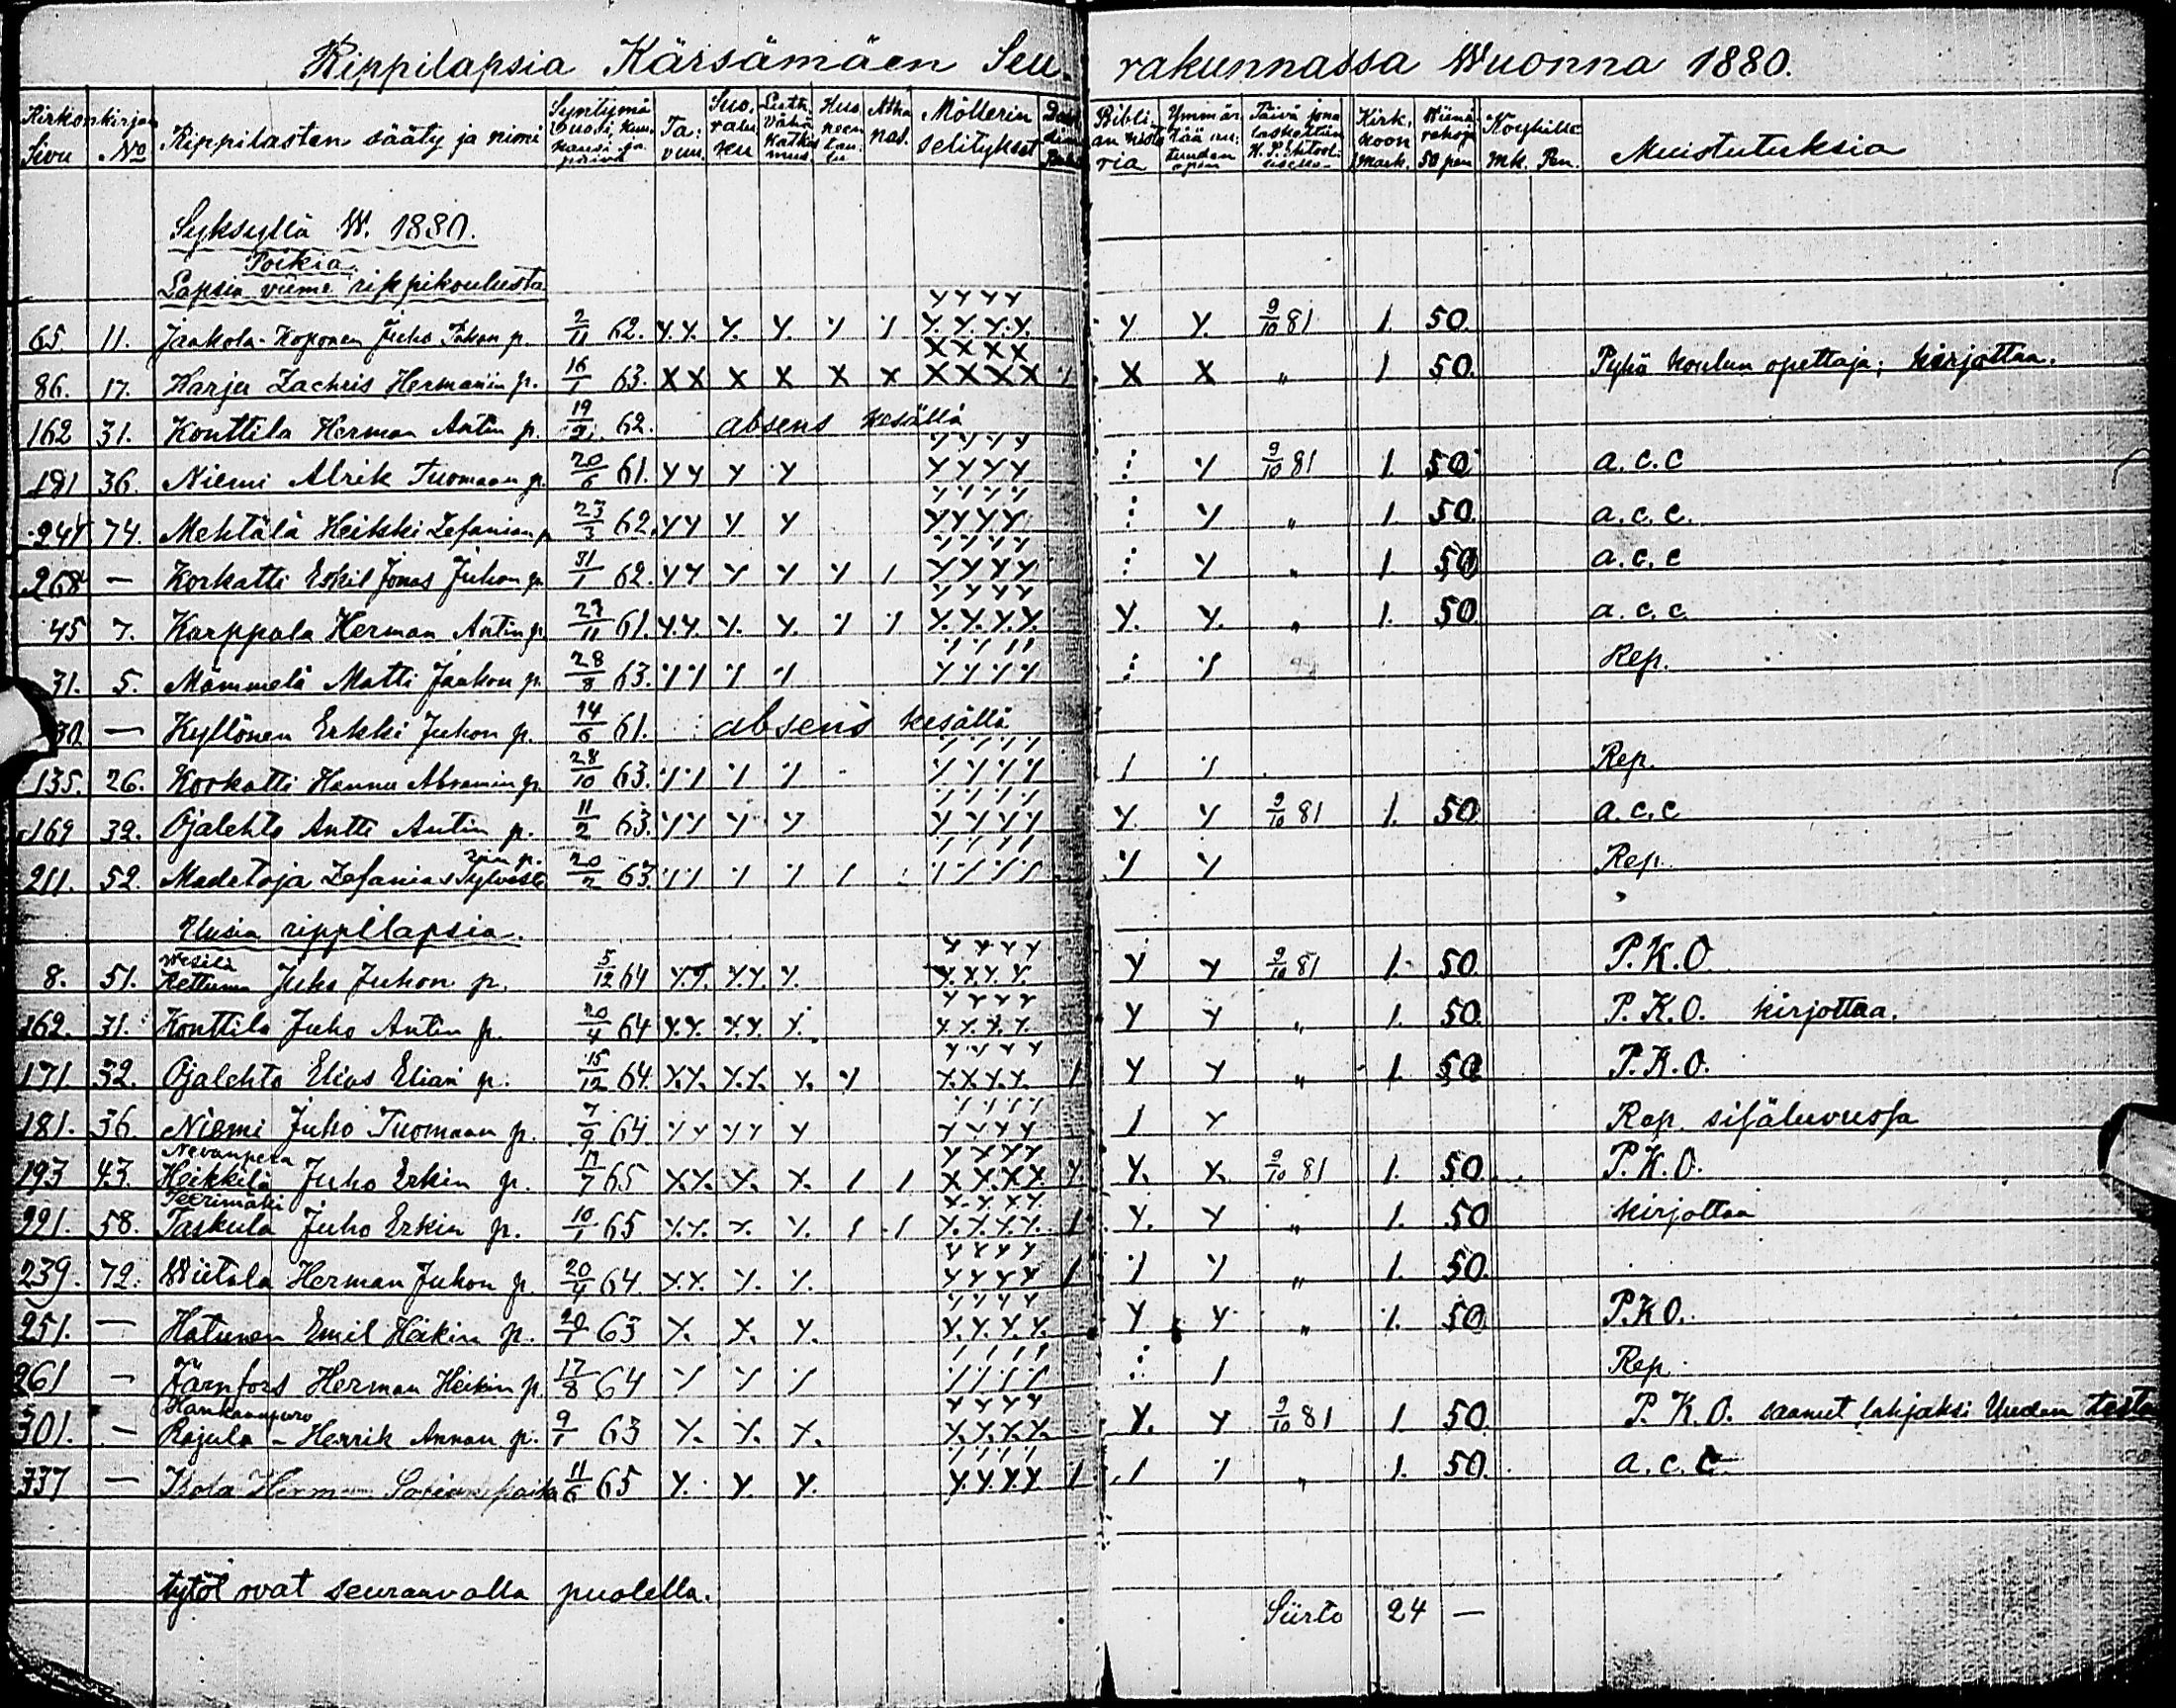 Rippilapsia Kärsämäen Seurakunnassa Wuonna 1880.
Kirkonkirjan Sivu No Rippilasten sääty ja nimi Syntymä vuosi, kuukausi ja päivä Tavuu Suoraluku Luth. Vähä Katkismus Huoneen taulu Atha nas. Möllerin selitykset Biblian historia Ymmärtää autuuden opin Päivä jona laskettiin H. P. Ehtoolliselle Kirkkoon Mark. Wiinarahoja 50 pen Köyhille Mk. Pen. Muistutuksia
Syksyllä W. 1880.
Poikia.
Lapsia viime rippikoulusta
65. 11. Jaakola-Koponen Juho Juhon p. 2/11 62. Y.Y. Y. Y. Y Y Y Y Y Y Y. Y. Y.Y. Y Y. 9/10 81 1. 50.
86. 17. Karju Zachris Hermanin p. 16/1 63. X X X X X X X X X X X X X X X X " 1 50. Pyhä koulun opettaja; kirjottaa.
162 31. Konttila Herman Antin p. 19/2. 62. absens kesällä
181 36. Niemi Alrik Tuomaan p. 20/6 61. Y Y Y Y Y Y Y Y Y 9/10 81 1. 50 a.c.c
241 74. Mehtälä Heikki Zefanian p 23/3 62. Y Y Y Y Y Y Y Y Y " 1. 50. a.c.c.
268 — Korkatti Eskil Jonas Juhon p. 31/1 62. Y Y Y Y Y 1 Y Y Y Y Y " 1. 50 a.c.c
45 7. Karppala Herman Antin p 27/11 61. Y.Y. Y. Y. Y Y Y.Y.Y.Y. Y. Y. " 1. 50 a.c.c.
31. 5. Mämmelä Matti Jaakon p. 28/8 63. Y Y Y Y Y Y Y Y Y Rep.
30 — Kyllönen Erkki Juhon p. 14/6 61. absens kesällä
135. 26. Korkatti Hannu Abramin p. 28/10 63. Y Y Y Y Y Y Y Y 1 Y Rep.
169 32. Ojalehto Antti Antin p. 11/2 63. Y Y Y Y Y Y Y Y Y. Y 9/10 81 1. 50 a.c.c
211. 52. Madetoja Zefanias Sylvesterin p. 20/2 63. Y Y Y Y 1 Y Y Y Y Y Y Rep.
Uusia rippilapsia.
8. 51. Wesilä Kettunen Juho Juhon p. 5/12 64 Y.Y. Y.Y. Y. Y.X.Y.Y. Y Y 9/10 81 1. 50. P.K.O.
162. 31. Konttila Juho Antin p. 20/4 64 Y.Y. Y.Y. Y. Y.Y.Y.Y. Y Y " 1. 50. P.K.O. kirjottaa.
171 32. Ojalehto Elias Elian p. 15/12 64. X.Y. Y.Y. Y. Y Y.X.Y.Y. 1 Y Y " 1. 50 P.K.O.
181. 36. Niemi Juho Tuomaan p. 7/9 64. Y Y Y Y Y Y Y Y Y 1 Y Rep. sisäluvussa
193 43. Nevanperä Heikkilä Juho Erkin p. 17/7 65 X.Y. Y. X. 1 1 X X X X Y. Y. X. 9/10 81 1. 50. P.K.O.
221. 58. Teerimäki Taskula Juho Erkin p. 10/1 65 Y.Y. Y. Y. 1 1 Y.Y.Y.Y. 1 Y. Y " 1. 50 kirjottaa
239. 72. Wiitala Herman Juhon p. 20/4 64. Y.Y. Y. Y. Y Y Y Y 1 Y Y " 1. 50.
251. — Hatunen Emil Heikin p. 20/1 63 Y. X. Y. Y.Y.Y.Y. Y Y " 1. 50 P.K.O.
261 — Järnfors Herman Heikin p. 17/8 64 Y Y Y Y Y Y Y 1 Rep.
301. — Hankaanpuro Rajula – Henrik Annan p. 9/1 63 Y. Y. Y. X.X.X.X. Y. Y 9/10 81 1. 50. P.K.O. saanut lahjaksi Uuden testa
337 — Isola Herman 11/6 65 Y. Y. Y. Y.Y.Y.Y 1 1 Y " 1. 50. a.c.c.
tytöt ovat seuraavalla puolella.
Siirto 24 —